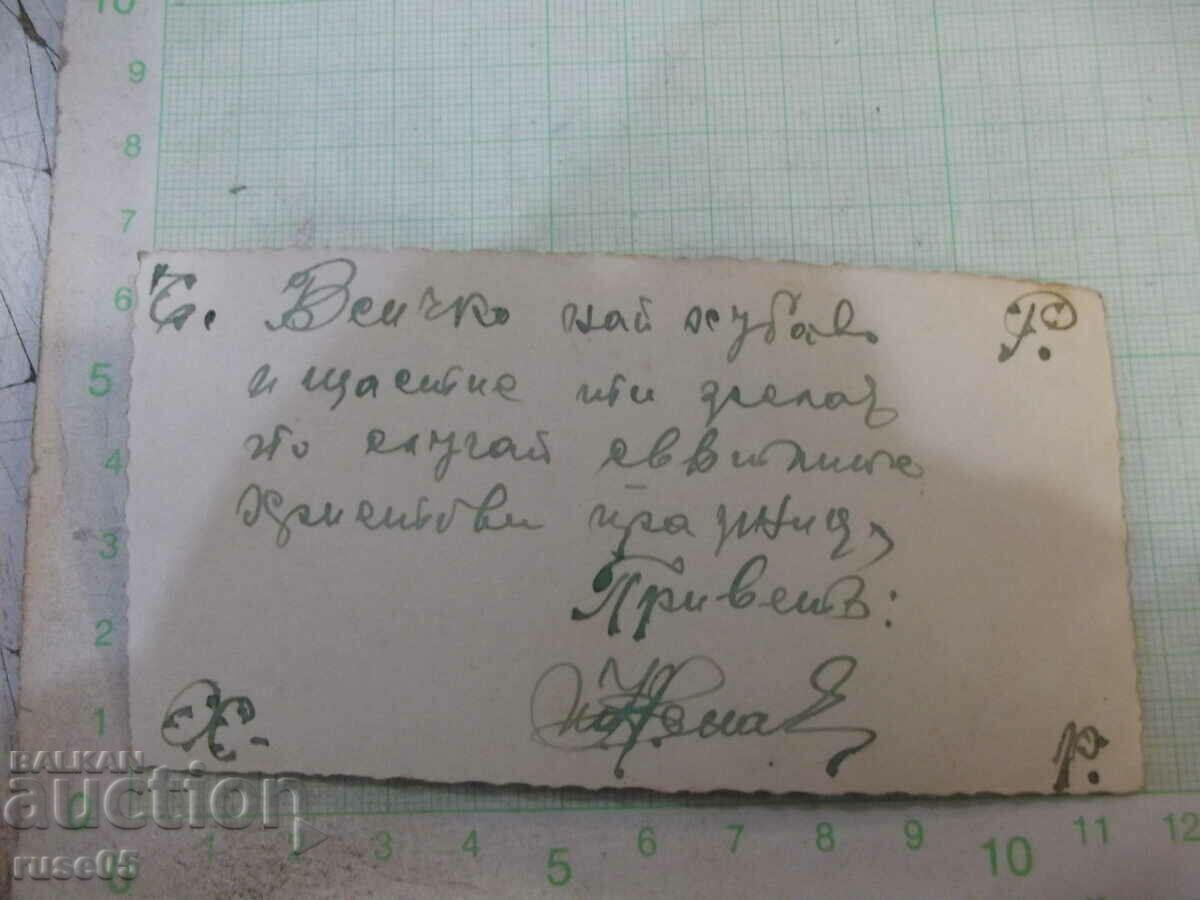 Ч. Всичко най хубаво Р.
и щастие ти желая
по случай
Христови празници,
Приветъ:
Х. Р.
10
9
8
7
6
5
4
3
2
1
0
0 1 2 3 4 5 6 7 8 9 10 11 12
BALKAN
auction
ruse05